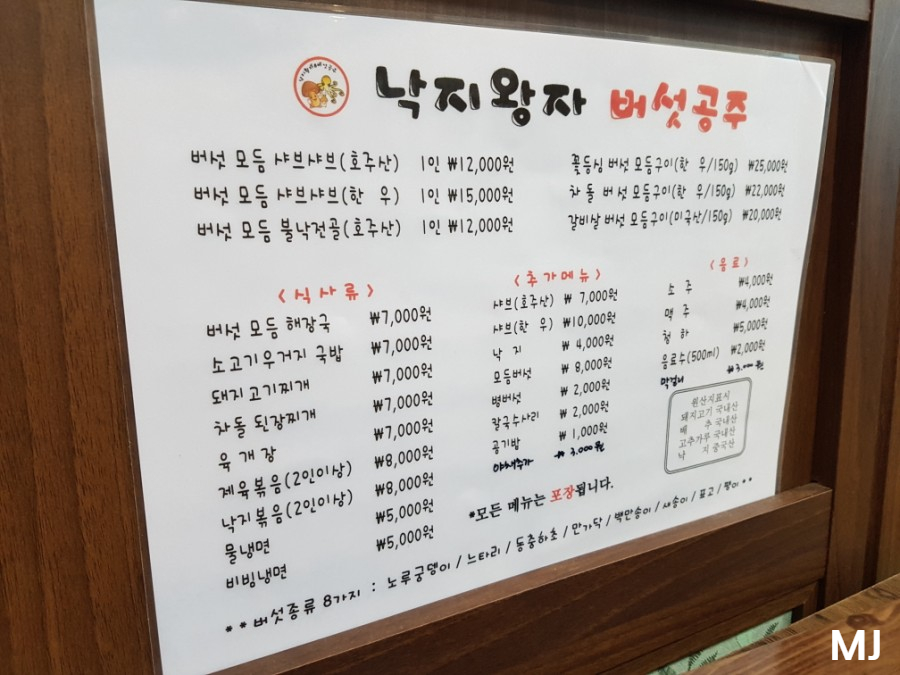 낙지왕자 버섯공주
버섯 모듬 샤브샤브(호주산) 1인 ₩12,000원
버섯 모듬 샤브샤브(한 우) 1인 ₩15,000원
버섯 모듬 불낙전골(호주산) 1인 ₩12,000원
꽃등심 버섯 모듬구이(한 우/150g) ₩25,000원
차 돌 버 섯 모듬구이(한 우/150g) ₩22,000원
갈비살 버섯 모듬구이(미국산/150g) ₩20,000원
< 식 사 류 >
버섯 모듬 해장국 ₩7,000원
소고기우거지 국밥 ₩7,000원
돼지고기찌개 ₩7,000원
차돌 된장찌개 ₩7,000원
육 개 장 ₩7,000원
제육볶음(2인이상) ₩8,000원
낙지볶음(2인이상) ₩8,000원
물냉면 ₩5,000원
비빔냉면 ₩5,000원
< 추 가 메 뉴 >
샤브(호주산) ₩ 7,000원
샤브(한 우) ₩10,000원
낙 지 ₩ 4,000원
모듬버섯 ₩ 8,000원
병버섯 ₩ 2,000원
칼국수사리 ₩ 2,000원
공기밥 ₩ 1,000원
야채추가 ₩ 3,000원
< 음 료 >
소 주 ₩4,000원
맥 주 ₩4,000원
청 하 ₩5,000원
음료수(500ml) ₩2,000원
막걸리 ₩3,000원
원산지표시
돼지고기 국내산
배 추 국내산
고추가루 국내산
낙 지 중국산
*모든 메뉴는 포장됩니다.
* * 버섯종류 8가지 : 노루궁뎅이 / 느타리 / 동충하초 / 만가닥 / 백만송이 / 새송이 / 표고 / 팽이 * *
MJ